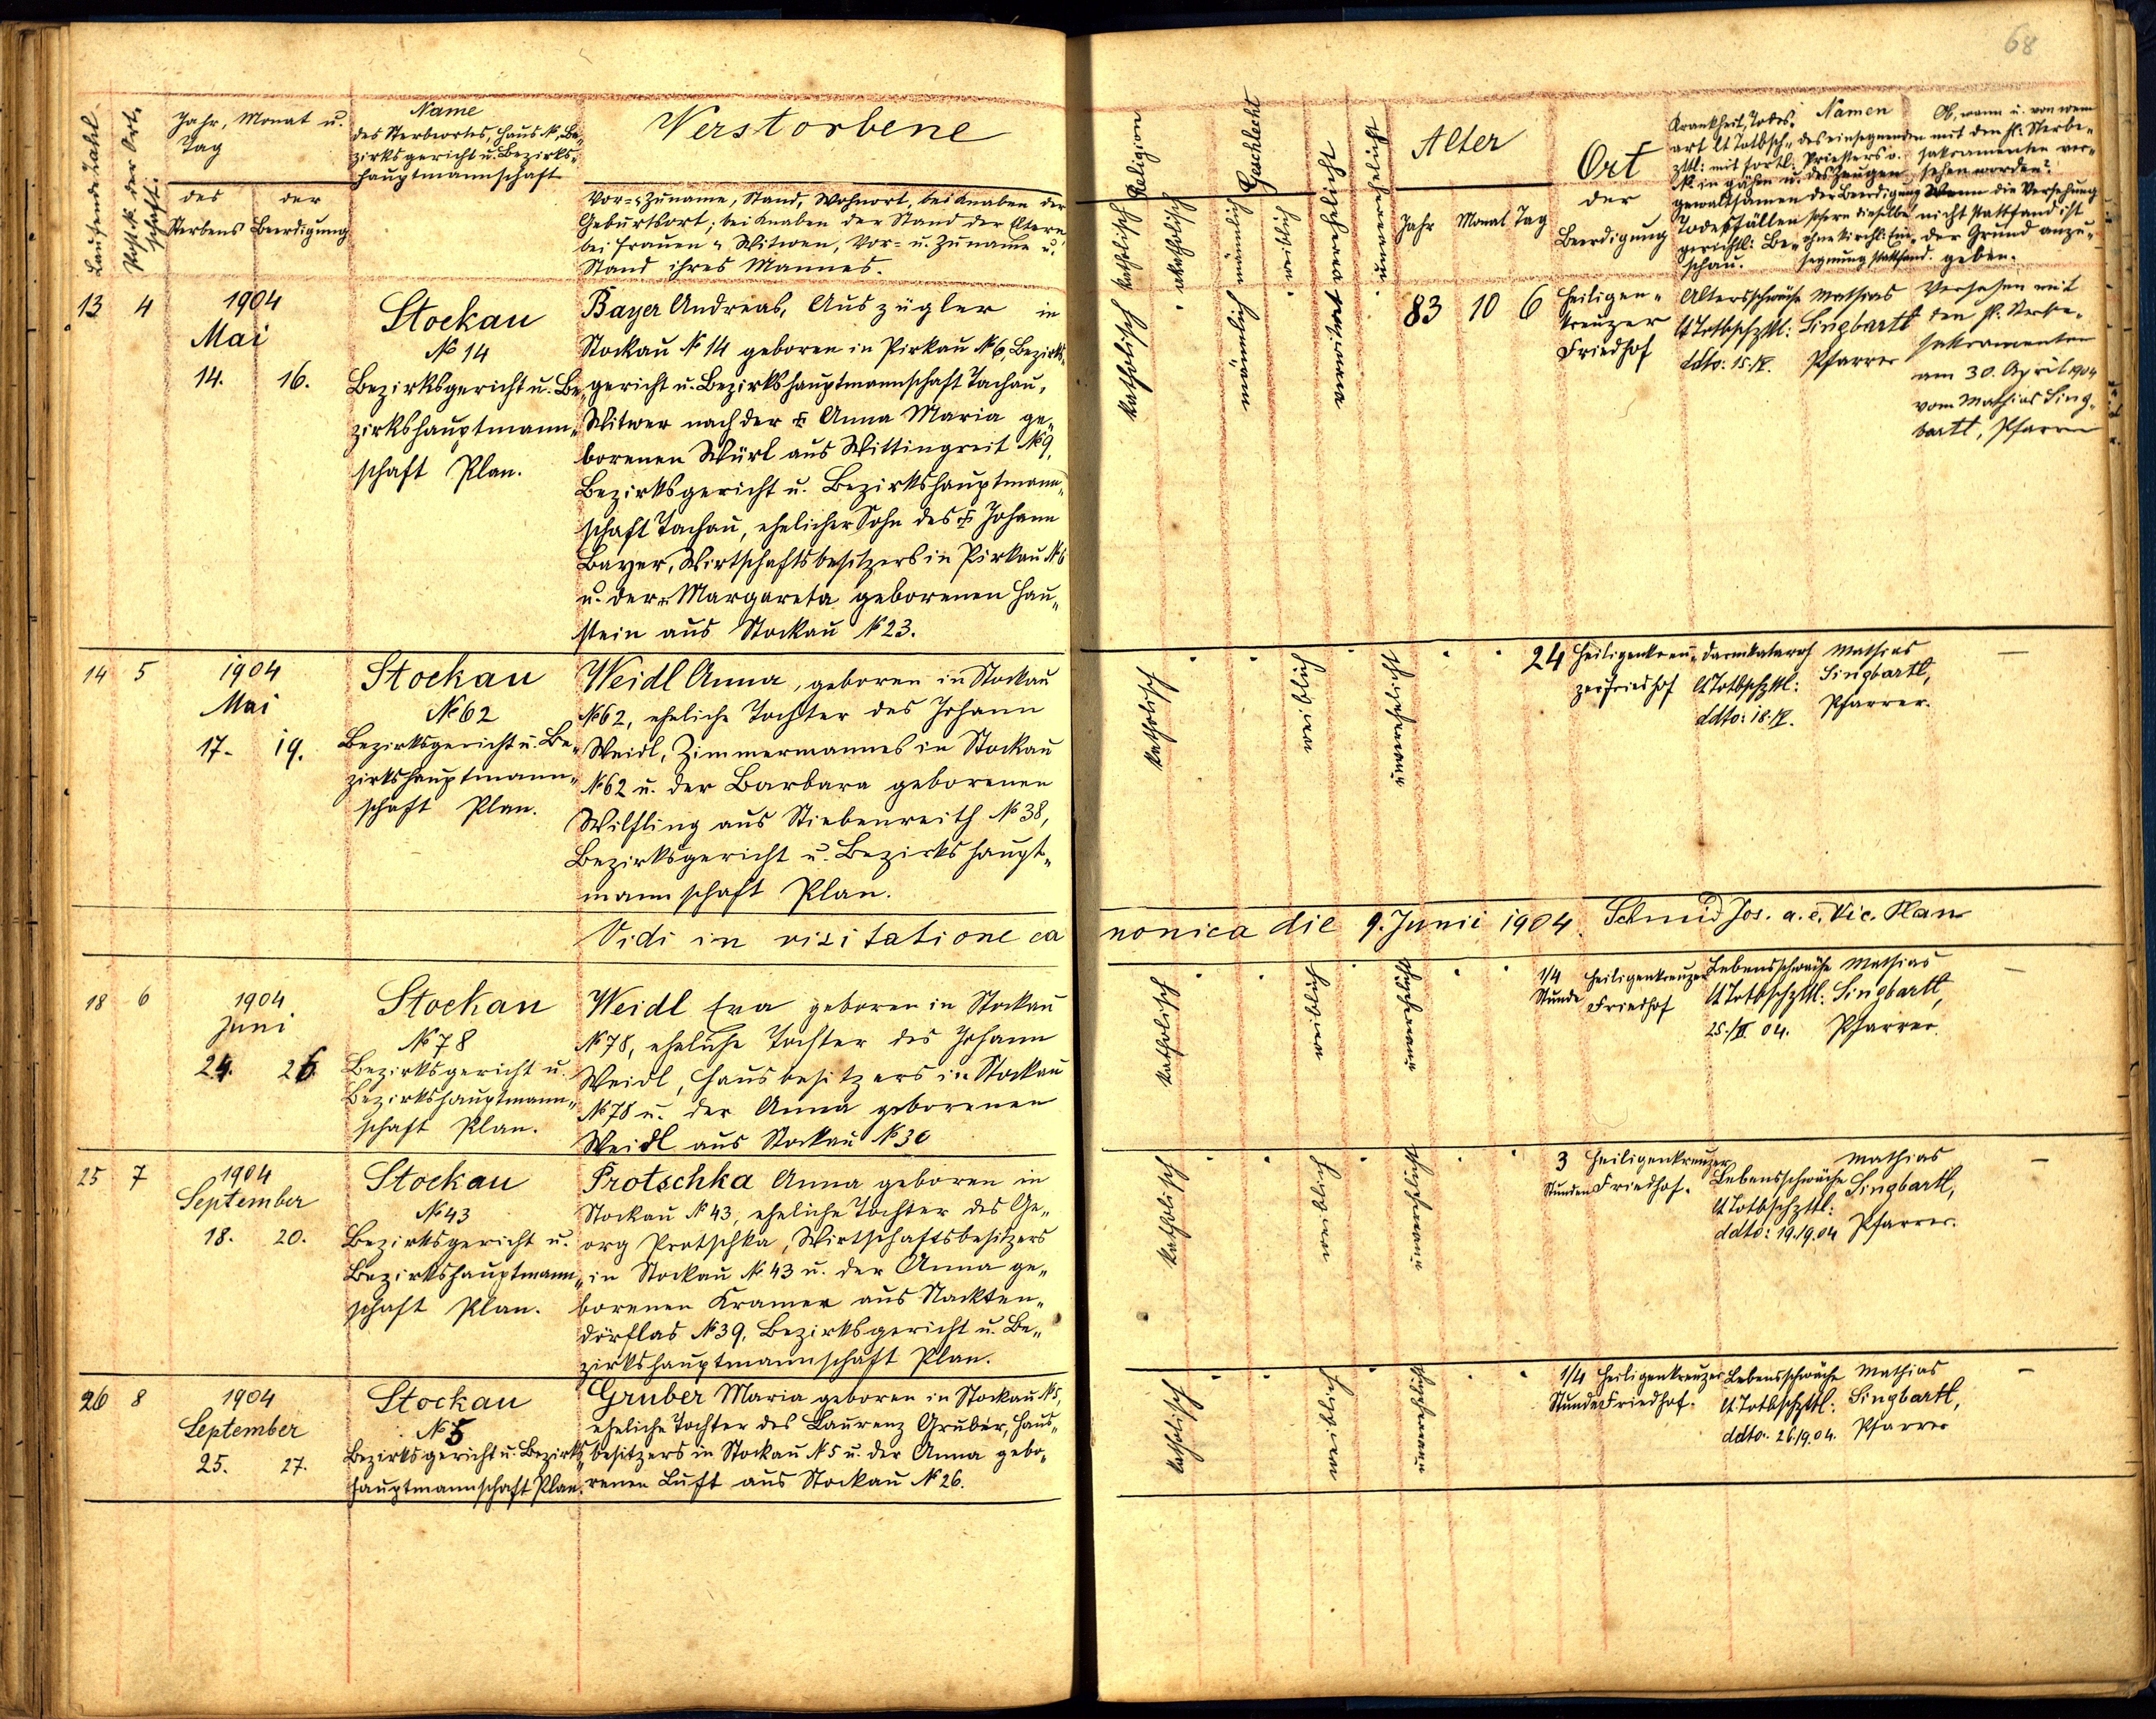 68
Laufende Zahl
Post-№ der Ort-
schaft.
Jahr, Monat u.
Tag
des
Sterbens
der
Beerdigung
Name
des Sterbeortes, Haus-№, Be-
zirksgericht u. Bezirks-
hauptmannschaft
Verstorbene
Vor- u. Zuname, Stand, Wohnort, bei Knaben der
Geburtsort; bei Knaben der Stand der Eltern
bei Frauen u. Witwen, Vor- u. Zuname u.
Stand ihres Mannes.
Religion
katholisch
akatholisch
Geschlecht
männlich
weiblich
verehelicht
unverehelicht
Alter
Jahr Monat Tag
Ort
der
Beerdigung
Krankheit, Todes-
art lt Totbsch-
zttl: mit fortl:
№ in gähen u.
gewaltsamen
Todesfällen
gerichtl: Be-
schau.
Namen
des einsegnenden
Priesters o.
des Zeugen
der Beerdigung
sofern dieselbe
ohne kirchl: Ein-
segnung stattfand.
Ob, wann u. von wem
mit den hl: Sterbe-
sakramenten ver-
sehen worden?
Wenn die Versehung
nicht stattfand ist
der Grund anzu-
geben.
13 4
1904
Mai
14. 16.
Stockau
№ 14
Bezirksgericht u. Be-
zirkshauptmann-
schaft Plan.
Bayer Andreas, Auszügler in
Stockau № 14 geboren in Pirkau № 6, Bezirks-
gericht u. Bezirkshauptmannschaft Tachau,
Witwer nach der † Anna Maria ge-
borenen Würl aus Wittingreit № 9,
Bezirksgericht u. Bezirkshauptmann-
schaft Tachau, ehelicher Sohn des † Johann
Bayer, Wirtschaftsbesitzers in Pirkau № 6
u. der † Margareta geborenen Hau-
stein aus Stockau № 23.
katholisch
männlich
verwitwet
83 10 6
Heiligen-
kreuzer
Friedhof
Altersschwäche
lt Totbschzttl:
ddto: 15./V.
Mathias
Singbartl
Pfarrer
Versehen mit
den hl. Sterbe-
sakramenten
am 30. April 1904
vom Mathias Sing-
bartl, Pfarrer
14 5
1904
Mai
17. 19.
Stockau
№ 62
Bezirksgericht u. Be-
zirkshauptmann-
schaft Plan.
Weidl Anna, geboren in Stockau
№ 62, eheliche Tochter des Johann
Weidl, Zimmermannes in Stockau
№ 62 u. der Barbara geborenen
Wilfling aus Stiebenreith № 38,
Bezirksgericht u. Bezirkshaupt-
mannschaft Plan.
katholisch
weiblich
unverehelicht
24
Heiligenkreu-
zer Friedhof
Darmkatarrh
lt Totbschzttl:
ddto: 18./V.
Mathias
Singbartl,
Pfarrer.
—
Vidi in visitatione ca
nonica die 9. Junii 1904. Schmid Jos. a. e. Vic. Plan
18 6
1904
Juni
24. 26
Stockau
№ 78
Bezirksgericht u.
Bezirkshauptmann-
schaft Plan.
Weidl Eva geboren in Stockau
№ 78, eheliche Tochter des Johann
Weidl, Hausbesitzers in Stockau
№ 78 u. der Anna geborenen
Weidl aus Stockau № 30
katholisch
weiblich
unverehelicht
1/4
Stunde
Heiligenkreuzer
Friedhof
Lebensschwäche
lt Totbschzttl:
25./VI. 04.
Mathias
Singbartl,
Pfarrer.
—
25 7
1904
September
18. 20.
Stockau
№ 43
Bezirksgericht u.
Bezirkshauptmann-
schaft Plan.
Protschka Anna geboren in
Stockau № 43, eheliche Tochter des Ge-
org Protschka, Wirtschaftsbesitzers
in Stockau № 43 u. der Anna ge-
borenen Kramer aus Nackten-
dörflas № 39, Bezirksgericht u. Be-
zirkshauptmannschaft Plan.
katholisch
weiblich
unverehelicht
3
Stunden
Heiligenkreuzer
Friedhof.
Lebensschwäche
lt Totbschzttl:
ddto: 19./9. 04
Mathias
Singbartl,
Pfarrer.
—
26 8
1904
September
25. 27.
Stockau
№ 5
Bezirksgericht u. Bezirks-
hauptmannschaft Plan.
Gruber Maria geboren in Stockau № 5,
eheliche Tochter des Laurenz Gruber, Haus-
besitzers in Stockau № 5 u. der Anna gebo-
renen Luft aus Stockau № 26.
katholisch
weiblich
unverehelicht
1/4
Stunde
Heiligenkreuzer
Friedhof.
Lebensschwäche
lt Totbschzttl:
ddto: 26./9. 04.
Mathias
Singbartl,
Pfarrer
—